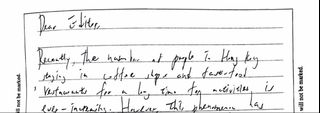 Dear Editor,
Recently, the number of people in Hong Kong
staying in coffee shops and fast-food
restaurants for a long time for activities is
ever-increasing. However, this phenomenon has
will not be marked.
will not be marked.